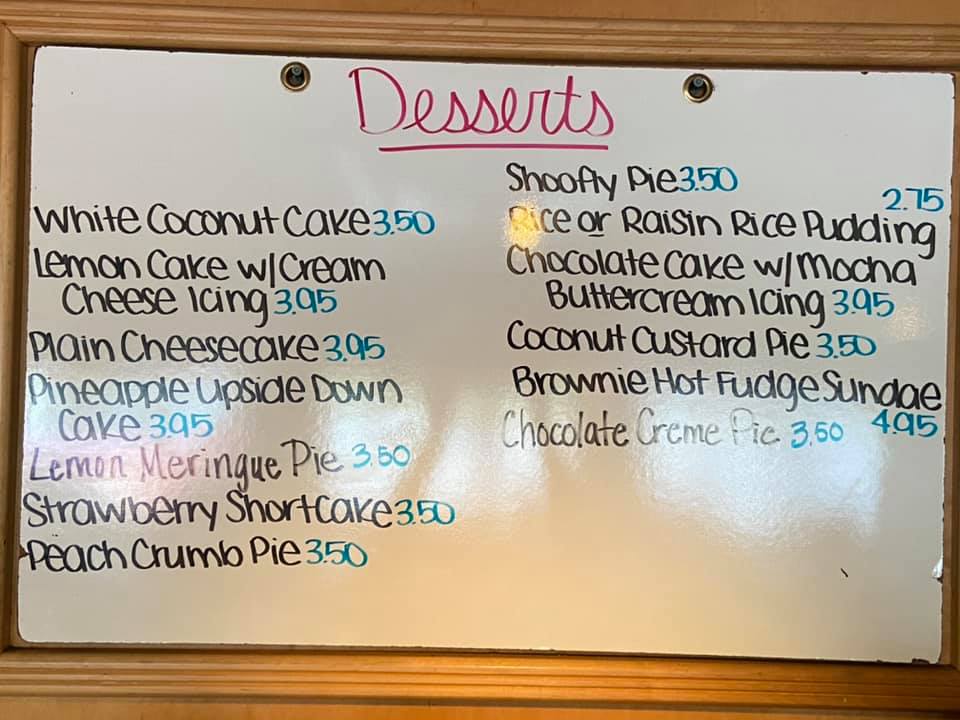 Desserts
White Coconut Cake 3.50
Lemon Cake w/Cream
Cheese Icing 3.95
Plain Cheesecake 3.95
Pineapple Upside Down
Cake 3.95
Lemon Meringue Pie 3.50
Strawberry Shortcake 3.50
Peach Crumb Pie 3.50
Shoofly Pie 3.50
2.75
Rice or Raisin Rice Pudding
Chocolate Cake w/Mocha
Buttercream Icing 3.95
Coconut Custard Pie 3.50
Brownie Hot Fudge Sundae
4.95
Chocolate Creme Pie 3.50